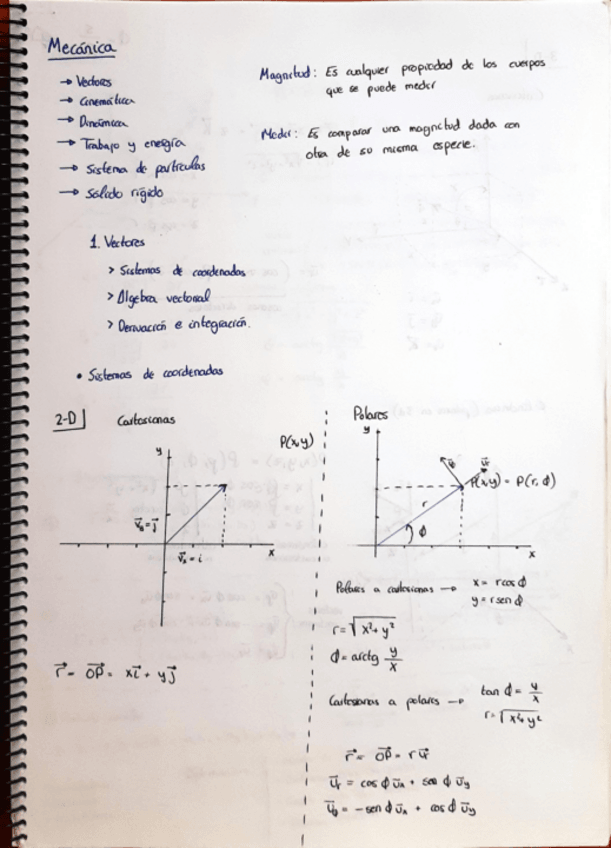 Mecánica
→ Vectores
→ Cinemática
→ Dinámica
→ Trabajo y energía
→ Sistema de partículas
→ Sólido rígido
Magnitud: Es cualquier propiedad de los cuerpos
que se puede medir
Medir: Es comparar una magnitud dada con
otra de su misma especie.
1. Vectores
> Sistemas de coordenadas
> Álgebra vectorial
> Derivación e integración.
• Sistemas de coordenadas
2-D
Cartesianas
P(x,y)
y
x
r⃗ = OP⃗ = x i⃗ + y j⃗
Polares
y
u⃗r
P(x,y) = P(r, ϕ)
r
ϕ
x
Polares a cartesianas → x = r cos ϕ
y = r sen ϕ
r = √x²+y²
ϕ = arctg y/x
Cartesianas a polares → tan ϕ = y/x
r = √x²+y²
r⃗ = OP⃗ = r u⃗r
u⃗r = cos ϕ u⃗x + sen ϕ u⃗y
u⃗ϕ = -sen ϕ u⃗x + cos ϕ u⃗y